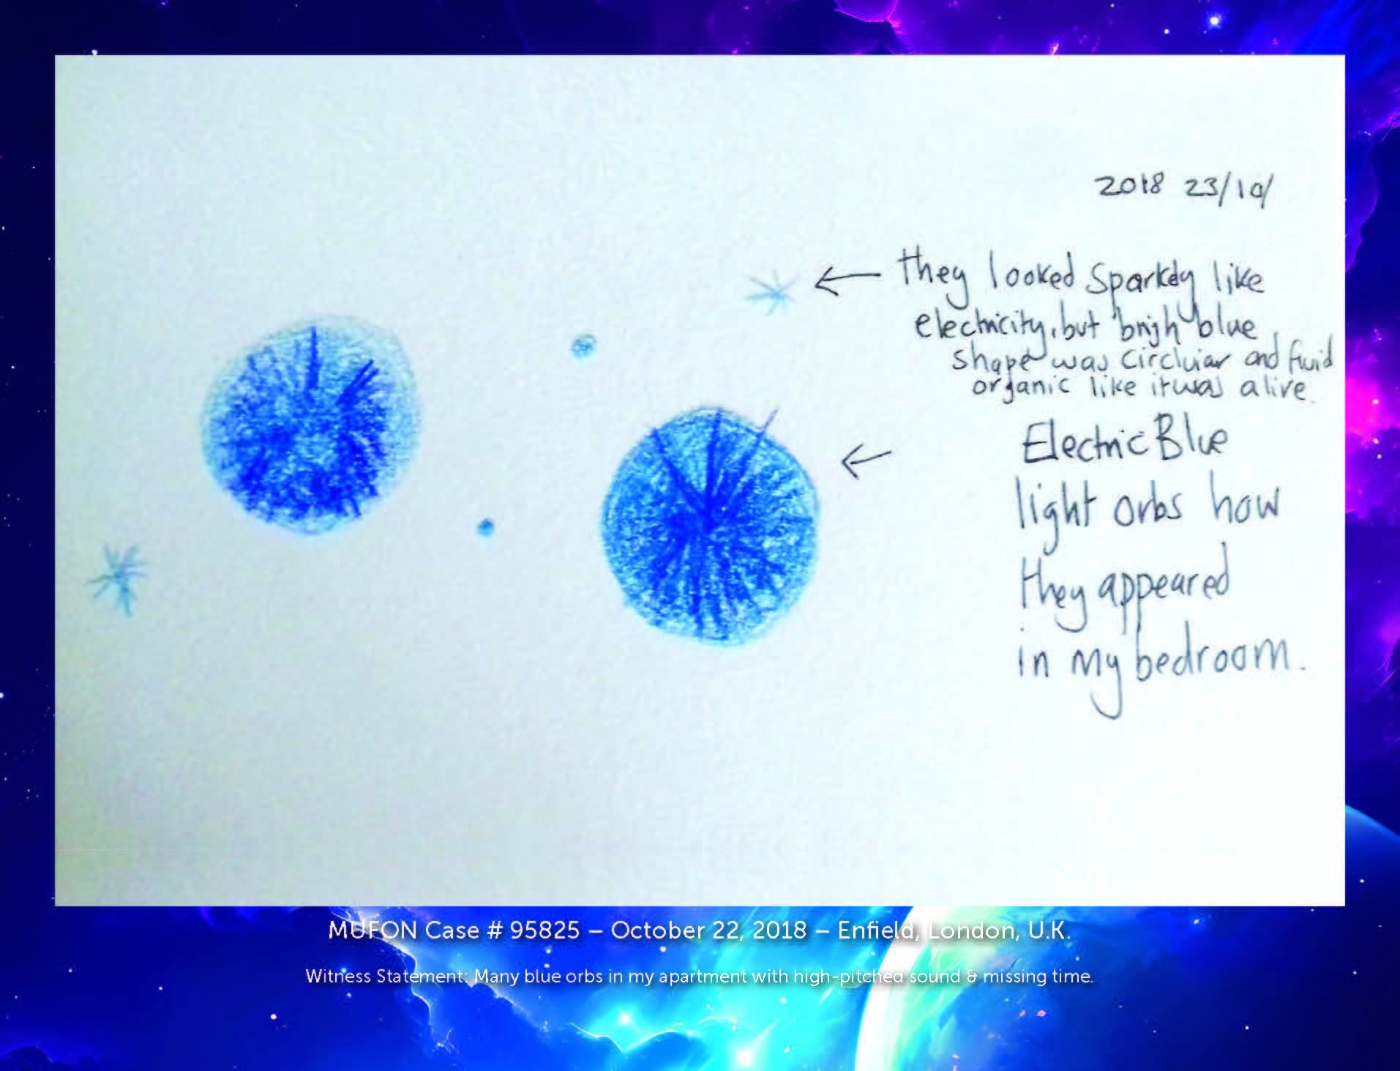 2018 23/10/
they looked Sparkely like
electricity, but brigh blue
shape was Circluiar and fluid
organic like it was alive.
Electric Blue
light orbs how
they appeared
in my bedroom.
MUFON Case # 95825 – October 22, 2018 – Enfield, London, U.K.
Witness Statement: Many blue orbs in my apartment with high-pitched sound & missing time.